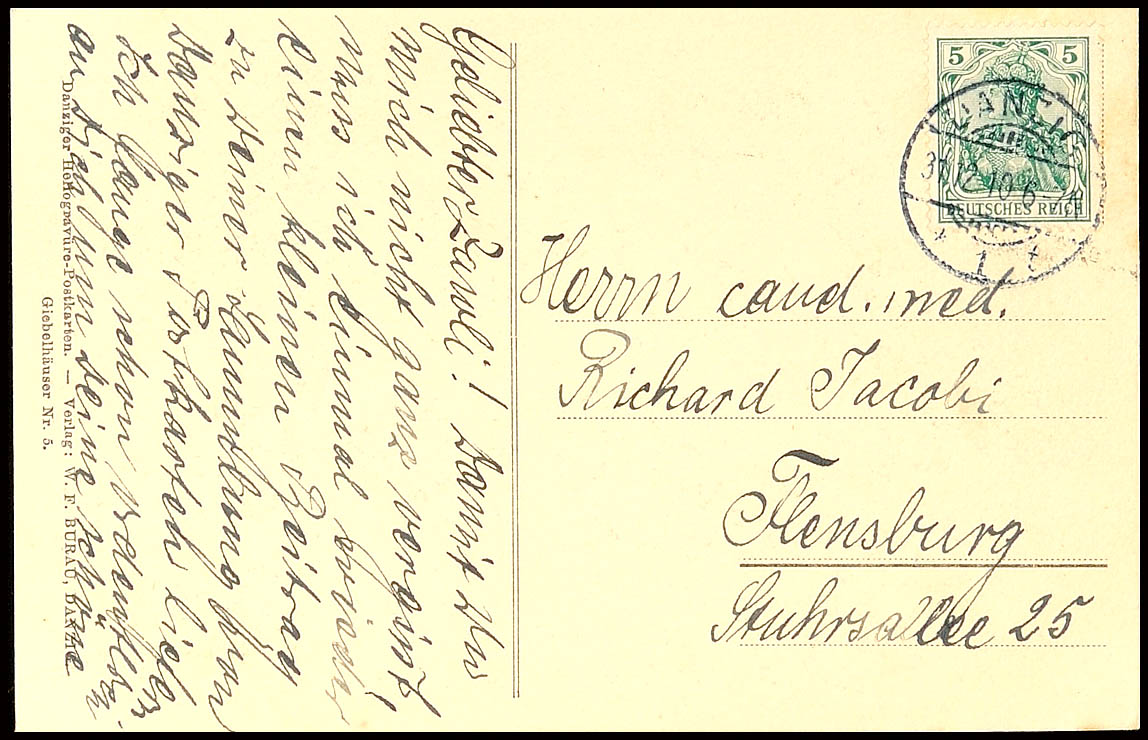 Geliebter Pauli! Damit Du
mich nicht ganz vergisst,
muss ich Dir einmal wieder
einen kleinen Beitrag
zu Deiner Sammlung von
Danziger Postkarten
Ich lange schon
an Dich um seine
Danziger Heliogravüre-Postkarten. — Verlag: W. F. BURAU, DANZIG
Giebelhäuser Nr. 5.
5 5
DEUTSCHES REICH
DANZIG
31.12.10.6-7
* 1 t
Herrn cand. med.
Richard Jacobi
Flensburg
Stuhrsallee 25